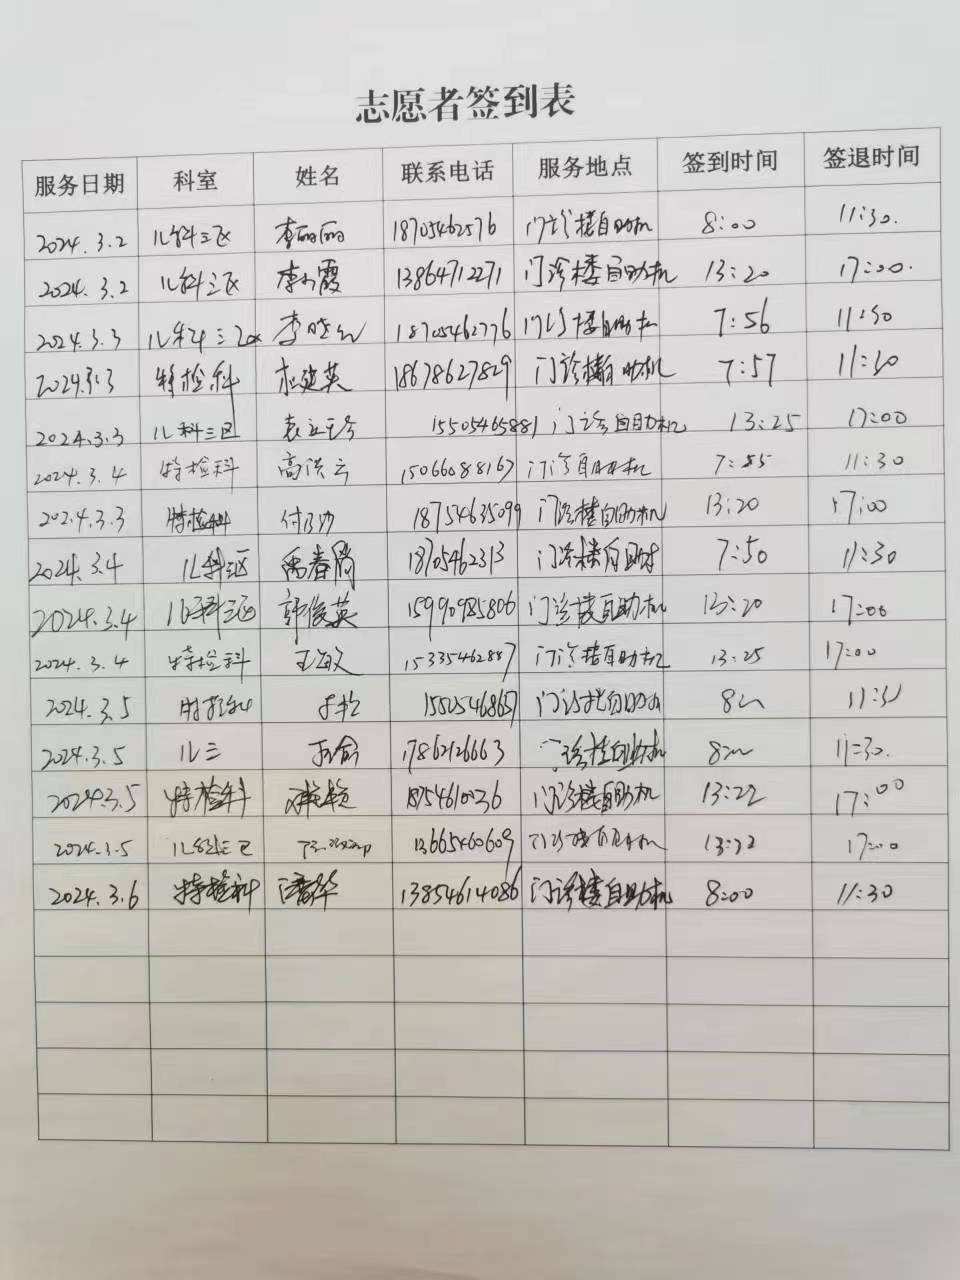 志愿者签到表
服务日期 科室 姓名 联系电话 服务地点 签到时间 签退时间
2024.3.2 儿科三区 李丽丽 18705462576 门诊楼自助机 8:00 11:30.
2024.3.2 儿科三区 李霞 13864712271 门诊楼自助机 13:20 17:00.
2024.3.3 儿科三区 李晓 18705462776 门诊楼自助机 7:56 11:30
2024.3.3 特检科 建英 18678627829 门诊楼自助机 7:57 11:30
2024.3.3 儿科三区 袁 15505465881 门诊自助机 13:25 17:00
2024.3.4 特检科 高洪云 15066088167 门诊自助机 7:55 11:30
2024.3.3 特检科 付 18754635099 门诊楼自助机 13:20 17:00
2024.3.4 儿科三区 禹春 18705462313 门诊楼自助机 7:50 11:30
2024.3.4 儿科三区 郭俊英 15990985806 门诊楼自助机 13:20 17:00
2024.3.4 特检科 王敏 15335462887 门诊楼自助机 13:25 17:00
2024.3.5 特检科 门诊楼自助机 11:30
2024.3.5 儿三 17862126663 门诊楼自助机 11:30.
2024.3.5 特检科 18754610036 门诊楼自助机 13:22 17:00
2024.3.5 儿科三区 13665460609 门诊楼自助机 13:22 17:00
2024.3.6 特检科 潘华 13854614086 门诊楼自助机 8:00 11:30